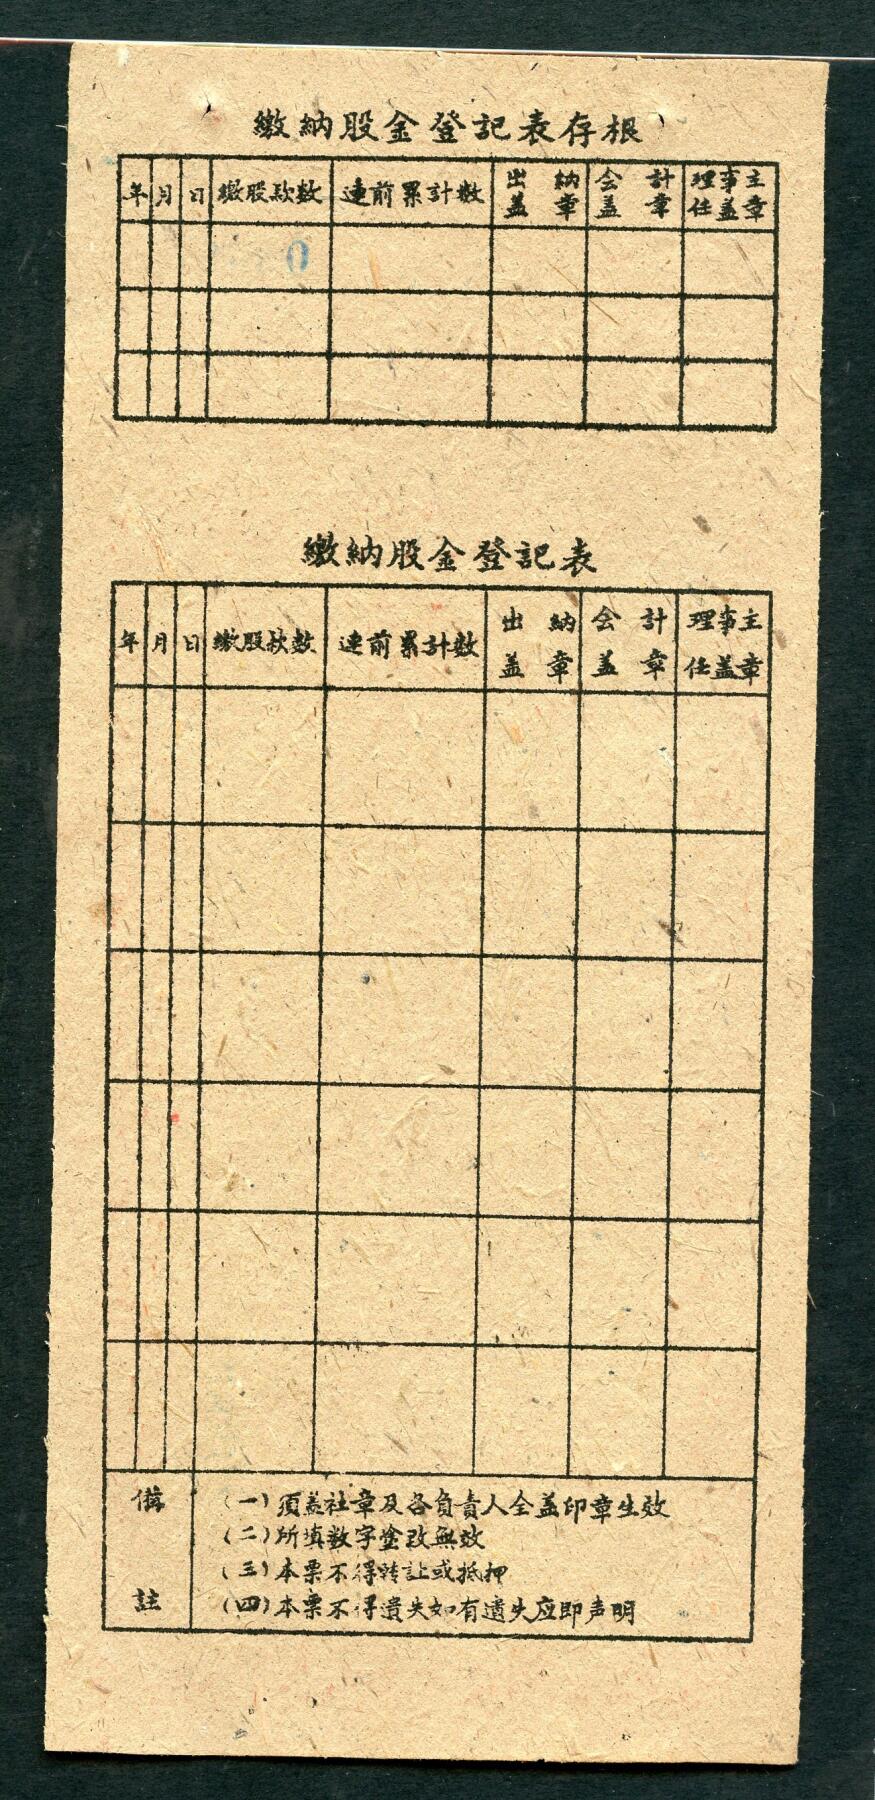 繳納股金登記表存根
年 月 日 繳股款数 連前累計数 出納盖章 会計盖章 理事主任盖章
0
繳納股金登記表
年 月 日 繳股款数 連前累計数 出納盖章 会計盖章 理事主任盖章
備註
(一)須盖社章及各負責人全盖印章生效
(二)所填数字塗改無效
(三)本票不得转让或抵押
(四)本票不得遺失如有遺失应即声明